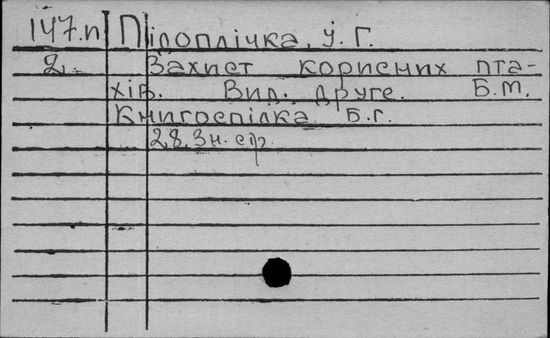 147.п Пілоплічка, У. Г.
2. Захист корисних пта-
хів. Вид. друге. Б.м.
Книгоспілка Б.г.
28, 3 н. стр.